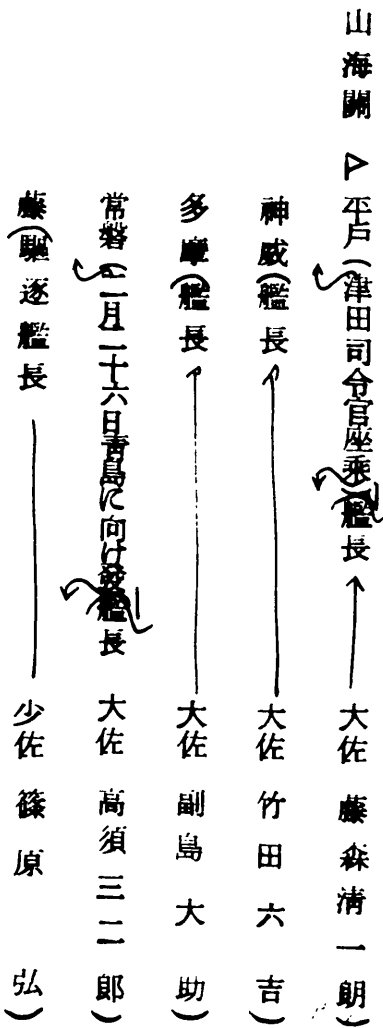 山海關 △ 平戶(津田司令官座乘)艦長 大佐 藤森淸一朗)
神威(艦長 大佐 竹田六吉)
多摩(艦長 大佐 副島大助)
常磐(二月二十六日靑島に向け發)艦長 大佐 高須三二郎)
藤(驅逐艦長 少佐 篠原 弘)